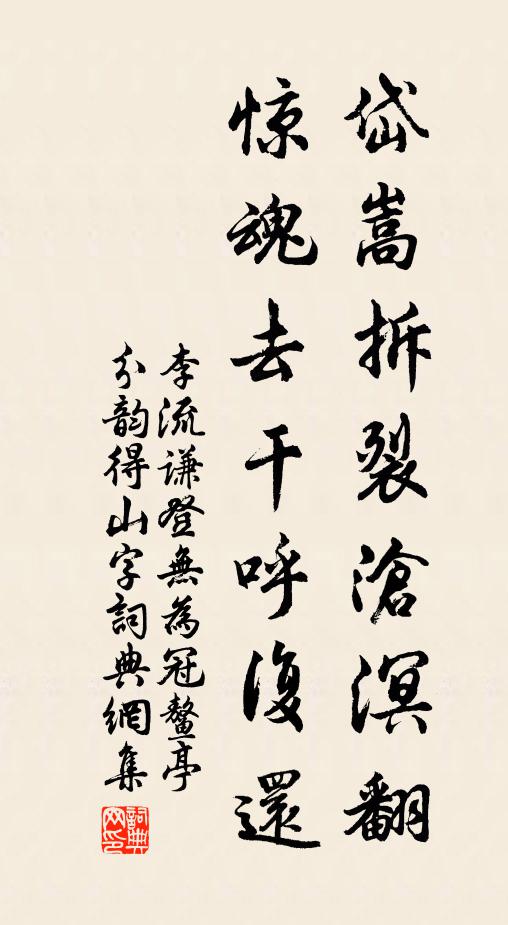 岱嵩拆裂滄溟翻
惊魂去干呼復還
李流谦登無為冠鰲亭
分韵得山字詞典網集
詞典
网印